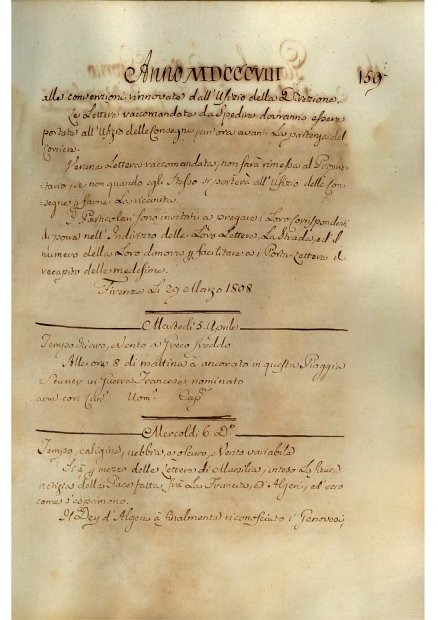 Anno MDCCCVIII 159
alle convenzioni rinnovate dall'Ufizio della Direzione.
Le Lettere raccomandate da spedire dovranno essere
portate all'Ufizio delle Consegne un'ora avanti La partenza del
Corriere.
Veruna Lettera raccomandata, non sarà rimessa al
se non quando egli stesso si porterà all'Ufizio delle Con-
segne farne La ricevuta.
I Particolari sono invitati a pregare i Loro Corrispondenti
di porre nell'Indirizzo delle Loro Lettere, La strada, ed il
numero della Loro dimora facilitare a i Porta-Lettere il
recapito delle medesime.
Firenze Li 29 Marzo 1808
Martedì 5. Aprile
Tempo Vento a Greco freddo
Alle ore 8 di mattina à ancorato in questa Piaggia
in Guerra Francese nominato
con Uom.
Mercoldì 6. D.º
Tempo, caligine, nebbia, e oscuro, Vento variabile
Si è mezzo delle Lettere di Marsilia, inteso La
notizia della Pace fatta frà La Francia, ed Algeri, ed ecco
come s'esprimono.
Il Dey d'Algeri à finalmente riconosciuto i Genovesi,